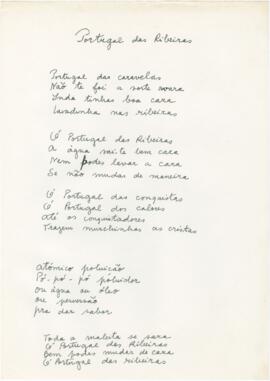 Portugal das Ribeiras
Portugal das caravelas
Não te foi a sorte avara
Inda tinhas boa cara
Lavadinha nas ribeiras
Ó Portugal das Ribeiras
A água sai-te bem cara
Nem podes lavar a cara
Se não mudas de maneira
Ó Portugal das conquistas
Ó Portugal dos calores
Até os conquistadores
Trazem murchinhas as cristas
Atómico poluição
Pó-pó-pó poluidor
Ou água ou óleo
ou perversão
pra dar sabor
Toda a maleita se sara
Ó Portugal das Ribeiras
Bem podes mudar de cara
Ó Portugal das ribeiras